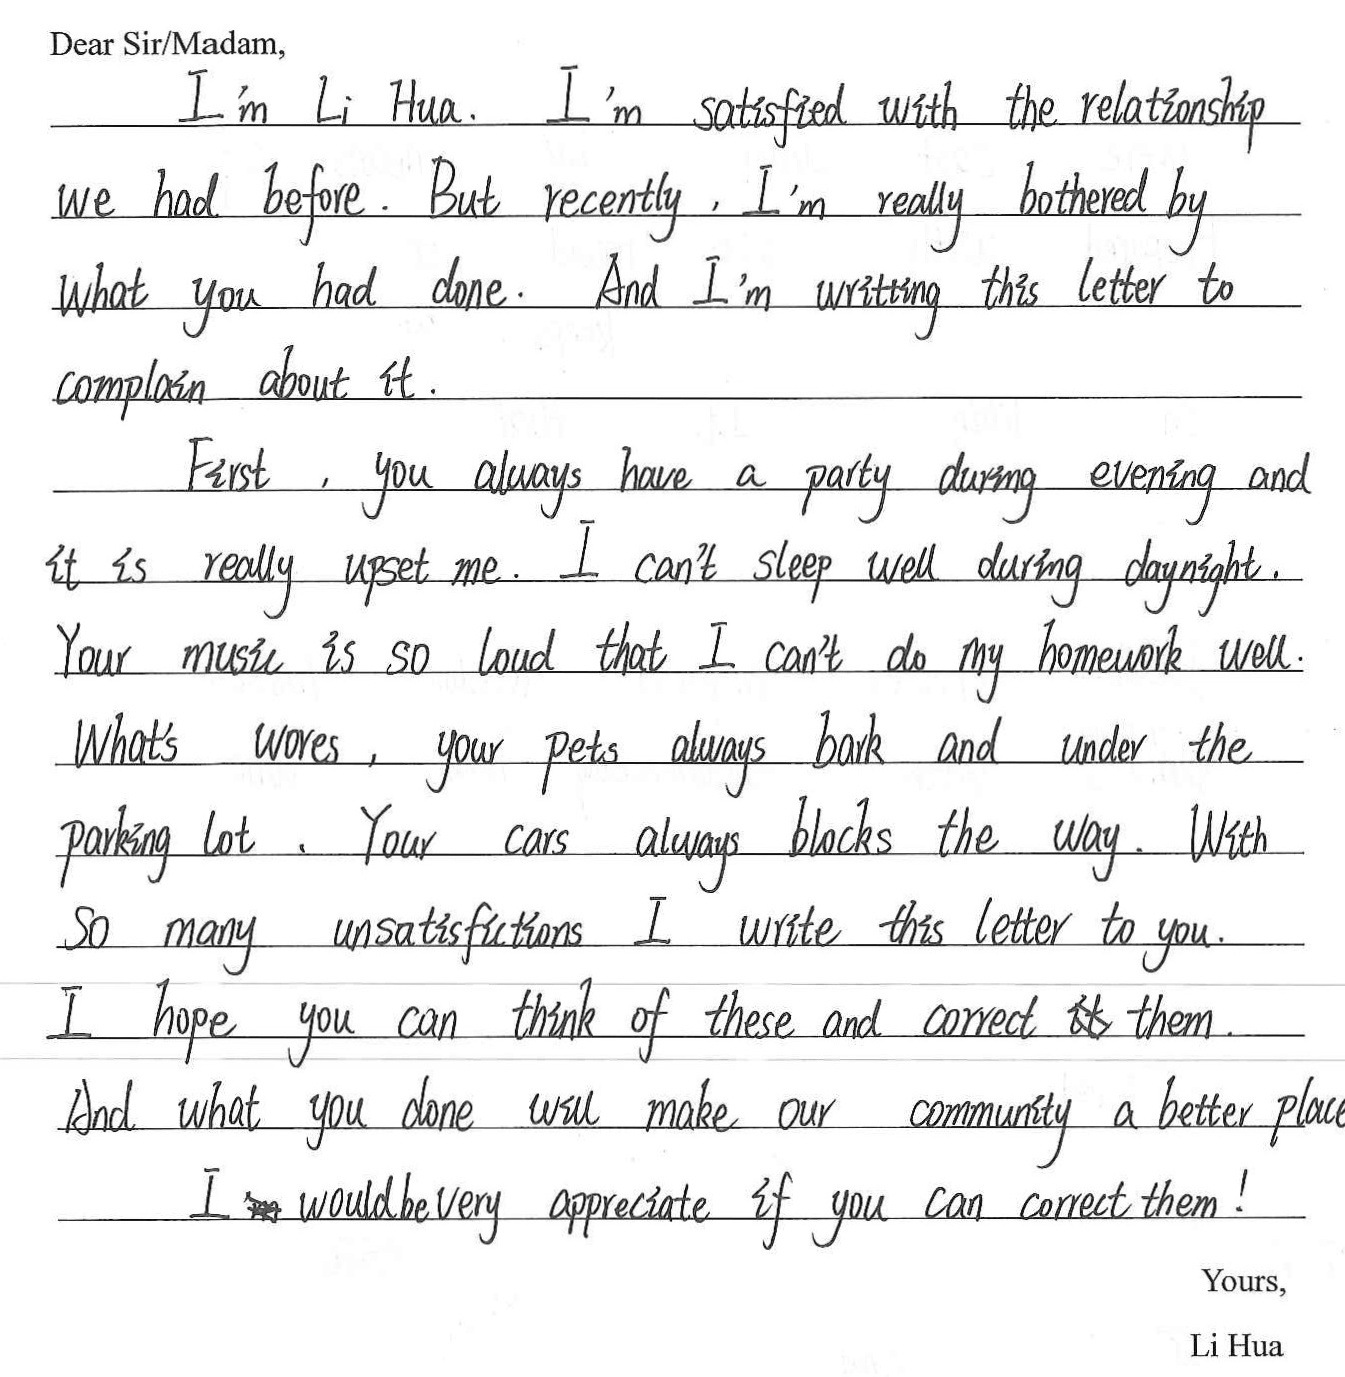 Dear Sir/Madam,
I'm Li Hua. I'm satisfied with the relationship
we had before. But recently, I'm really bothered by
what you had done. And I'm writting this letter to
complain about it.
First, you always have a party during evening and
it is really upset me. I can't sleep well during daynight.
Your music is so loud that I can't do my homework well.
What's wores, your pets always bark and under the
parking lot. Your cars always blocks the way. With
so many unsatisfictions I write this letter to you.
I hope you can think of these and correct them.
And what you done will make our community a better place
I would be very appreciate if you can correct them!
Yours,
Li Hua